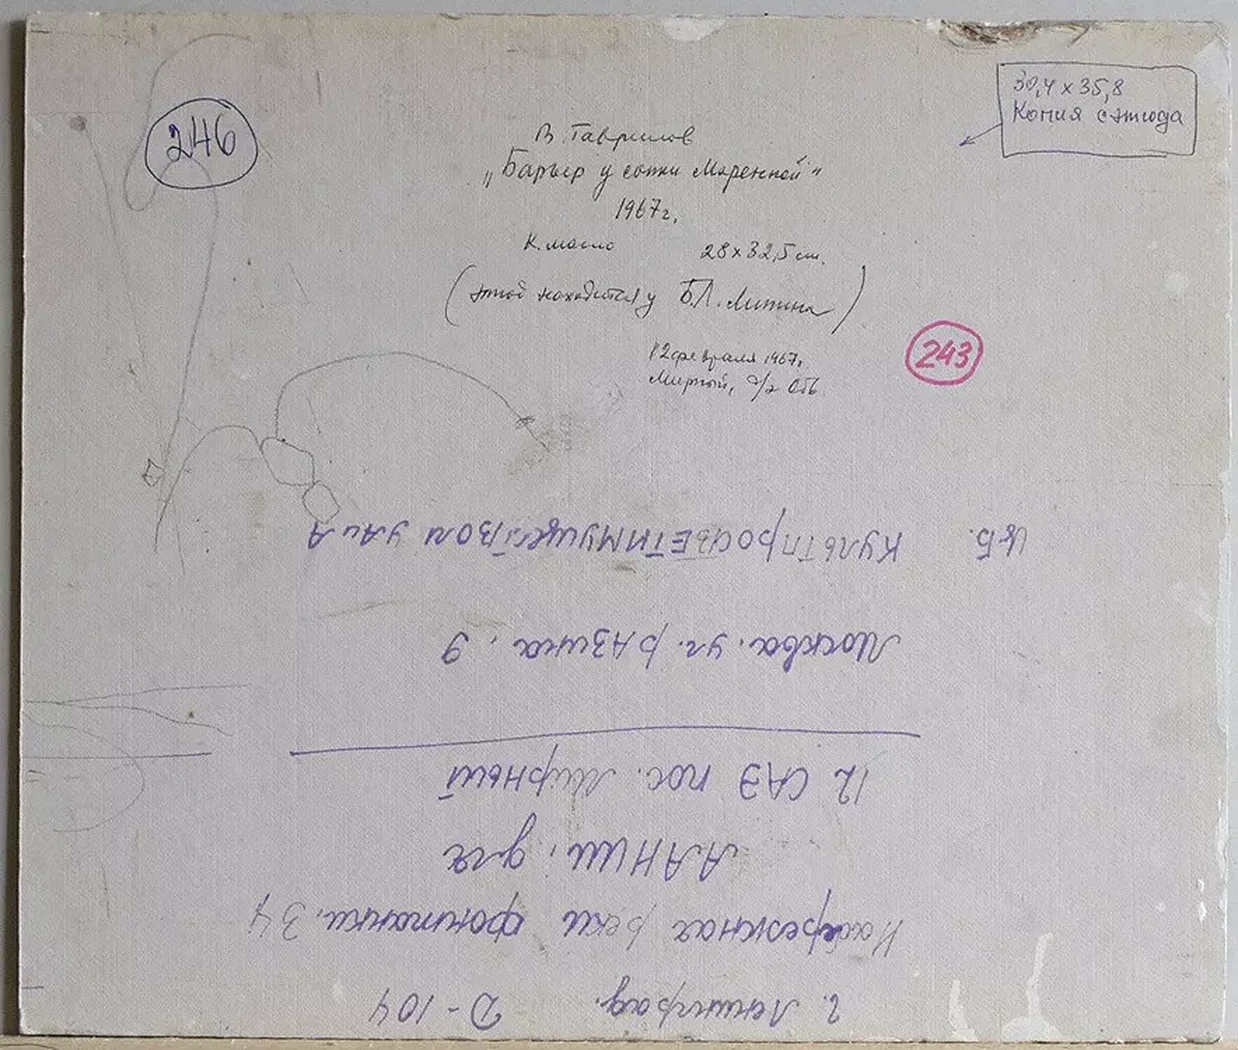 246
30,4 x 35,8
Копия с этюда
В. Гаврилов
„Барьер у сопки Моренной"
1967г.
К. масло 28 x 32,5 см.
(этюд находится у Б.Л. Литина)
12 февраля 1967г.
Мирный, д/э Обь
243
г. Ленинград. Д-104
Набережная реки Фонтанки. 34
ААНИИ, для
12 САЭ пос. Мирный
Москва. ул. Разина, 9
Культпросветимуществом
ЦБ.